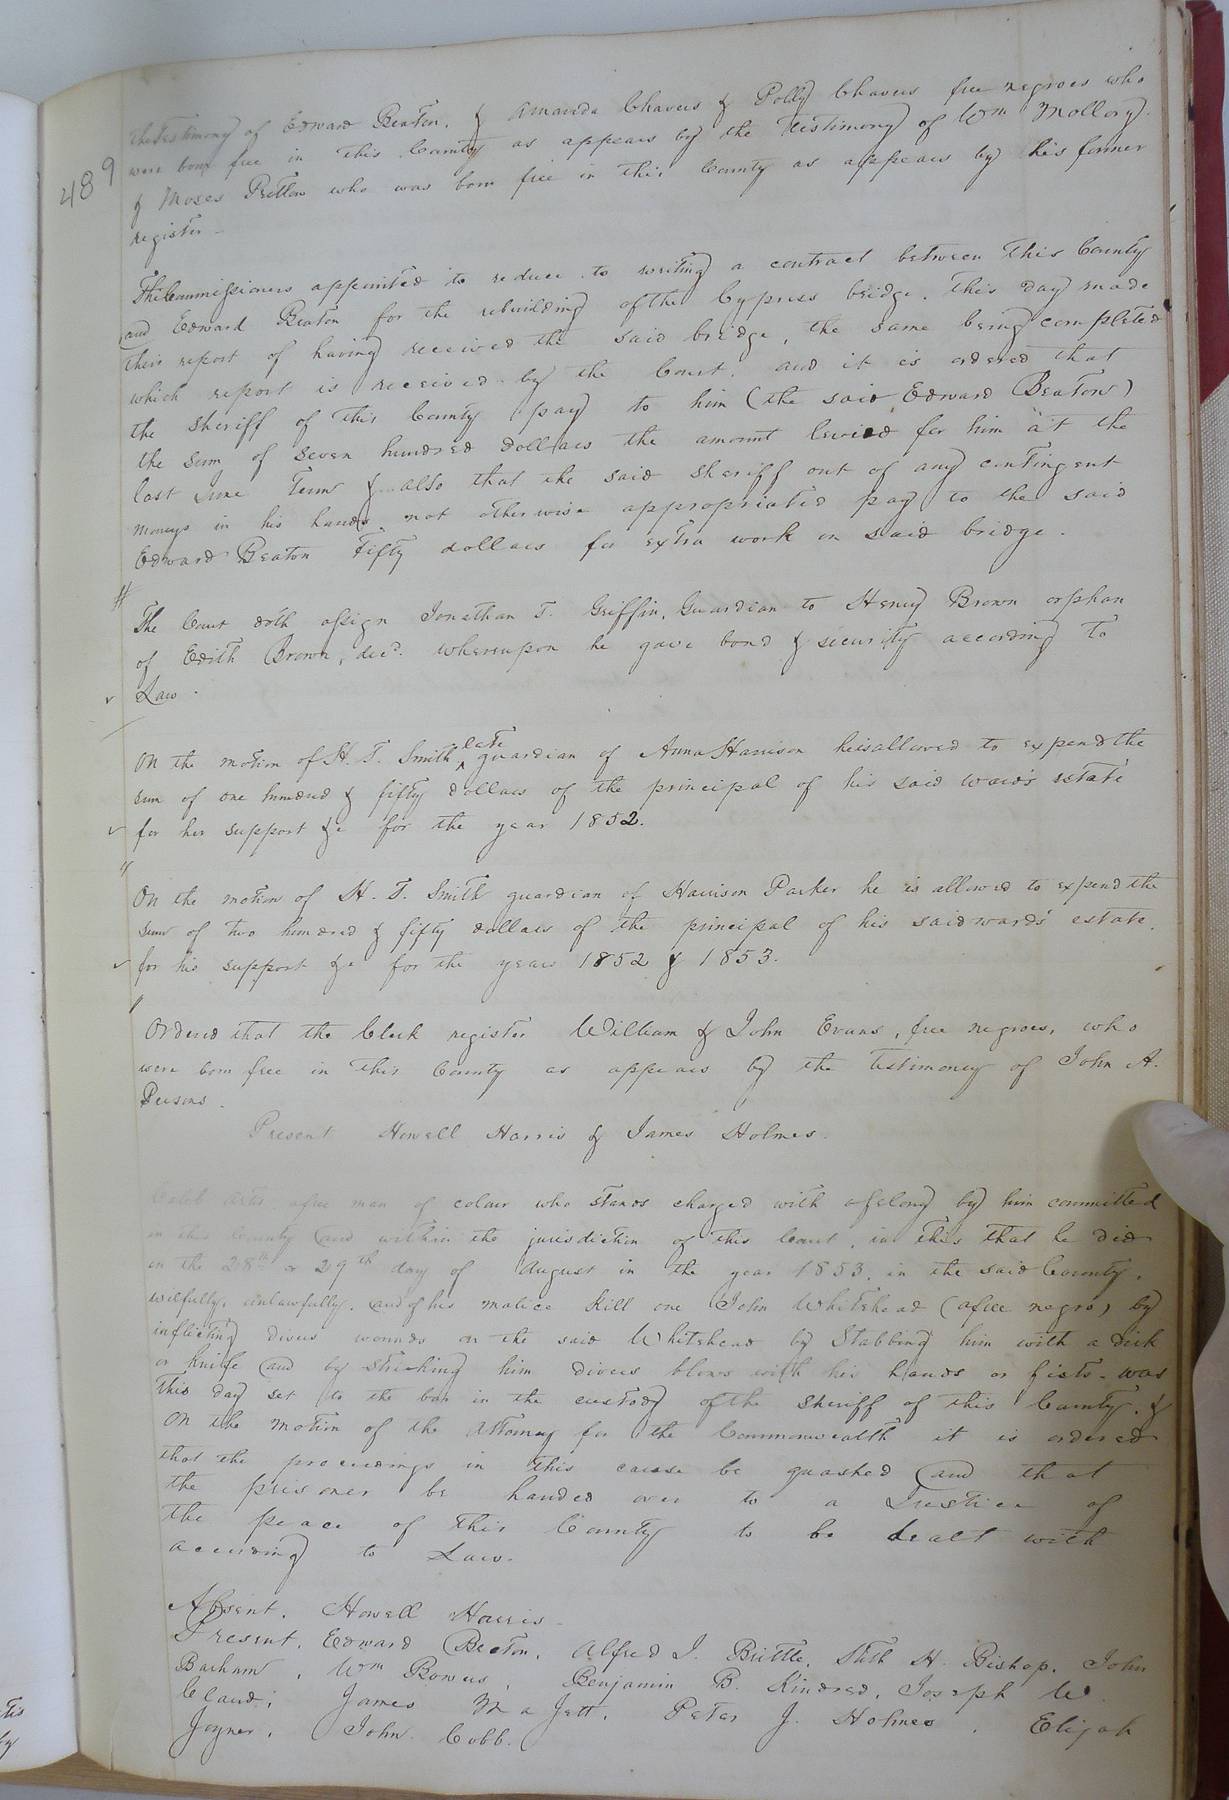 489
the testimony of Edward Beaton, & Amanda Chavers & Polly Chavers free negroes who
were born free in this County as appears by the testimony of Wm Mallory.
& Moses Britton who was born free in this County as appears by his former
register -
The Commissioners appointed to reduce to writing a contract between this County
and Edward Beaton for the rebuilding of the Cypress bridge, this day made
their report of having received the said bridge, the same being completed
which report is received by the Court, and it is ordered that
the Sheriff of this County pay to him (the said Edward Beaton)
the sum of seven hundred dollars the amount levied for him at the
last June Term & also that the said Sheriff out of any contingent
moneys in his hands not otherwise appropriated pay to the said
Edward Beaton Fifty dollars for extra work on said bridge.
The Court doth assign Jonathan T. Griffin, Guardian to Henry Brown orphan
of Edith Brown, decd. whereupon he gave bond & security according to
Law.
On the motion of H. T. Smith late guardian of Anna Harrison he is allowed to expend the
sum of one hundred & fifty dollars of the principal of his said ward's estate
for her support &c for the year 1852.
On the motion of H. T. Smith guardian of Harrison Parker he is allowed to expend the
sum of two hundred & fifty dollars of the principal of his said wards' estate.
for his support &c for the years 1852 & 1853.
Ordered that the Clerk register William & John Evans, free negroes, who
were born free in this County as appears by the testimony of John A.
Persons.
Present Howell Harris & James Holmes.
a free man of colour who stands charged with a felony by him committed
in this County and within the jurisdiction of this Court, in this that he did
on the 28th or 29th day of August in the year 1853, in the said County,
wilfully, unlawfully, and of his malice kill one John Whitehead (a free negro) by
inflicting divers wounds on the said Whitehead by Stabbing him with a dirk
or knife and by striking him divers blows with his hands or fists - was
this day set to the bar in the custody of the Sheriff of this County. &
On the motion of the Attorney for the Commonwealth it is ordered
that the proceedings in this cause be quashed and that
the prisoner be handed over to a Justice of
the peace of this County to be dealt with
according to Law.
Absent, Howell Harris
Present, Edward Beaton, Alfred J. Brittle, Stith H. Bishop, John
Barham, Wm Bowers, Benjamin B. Kindred, Joseph W.
Claud, James Majett, Peter J. Holmes, Elijah
Joyner, John Cobb.